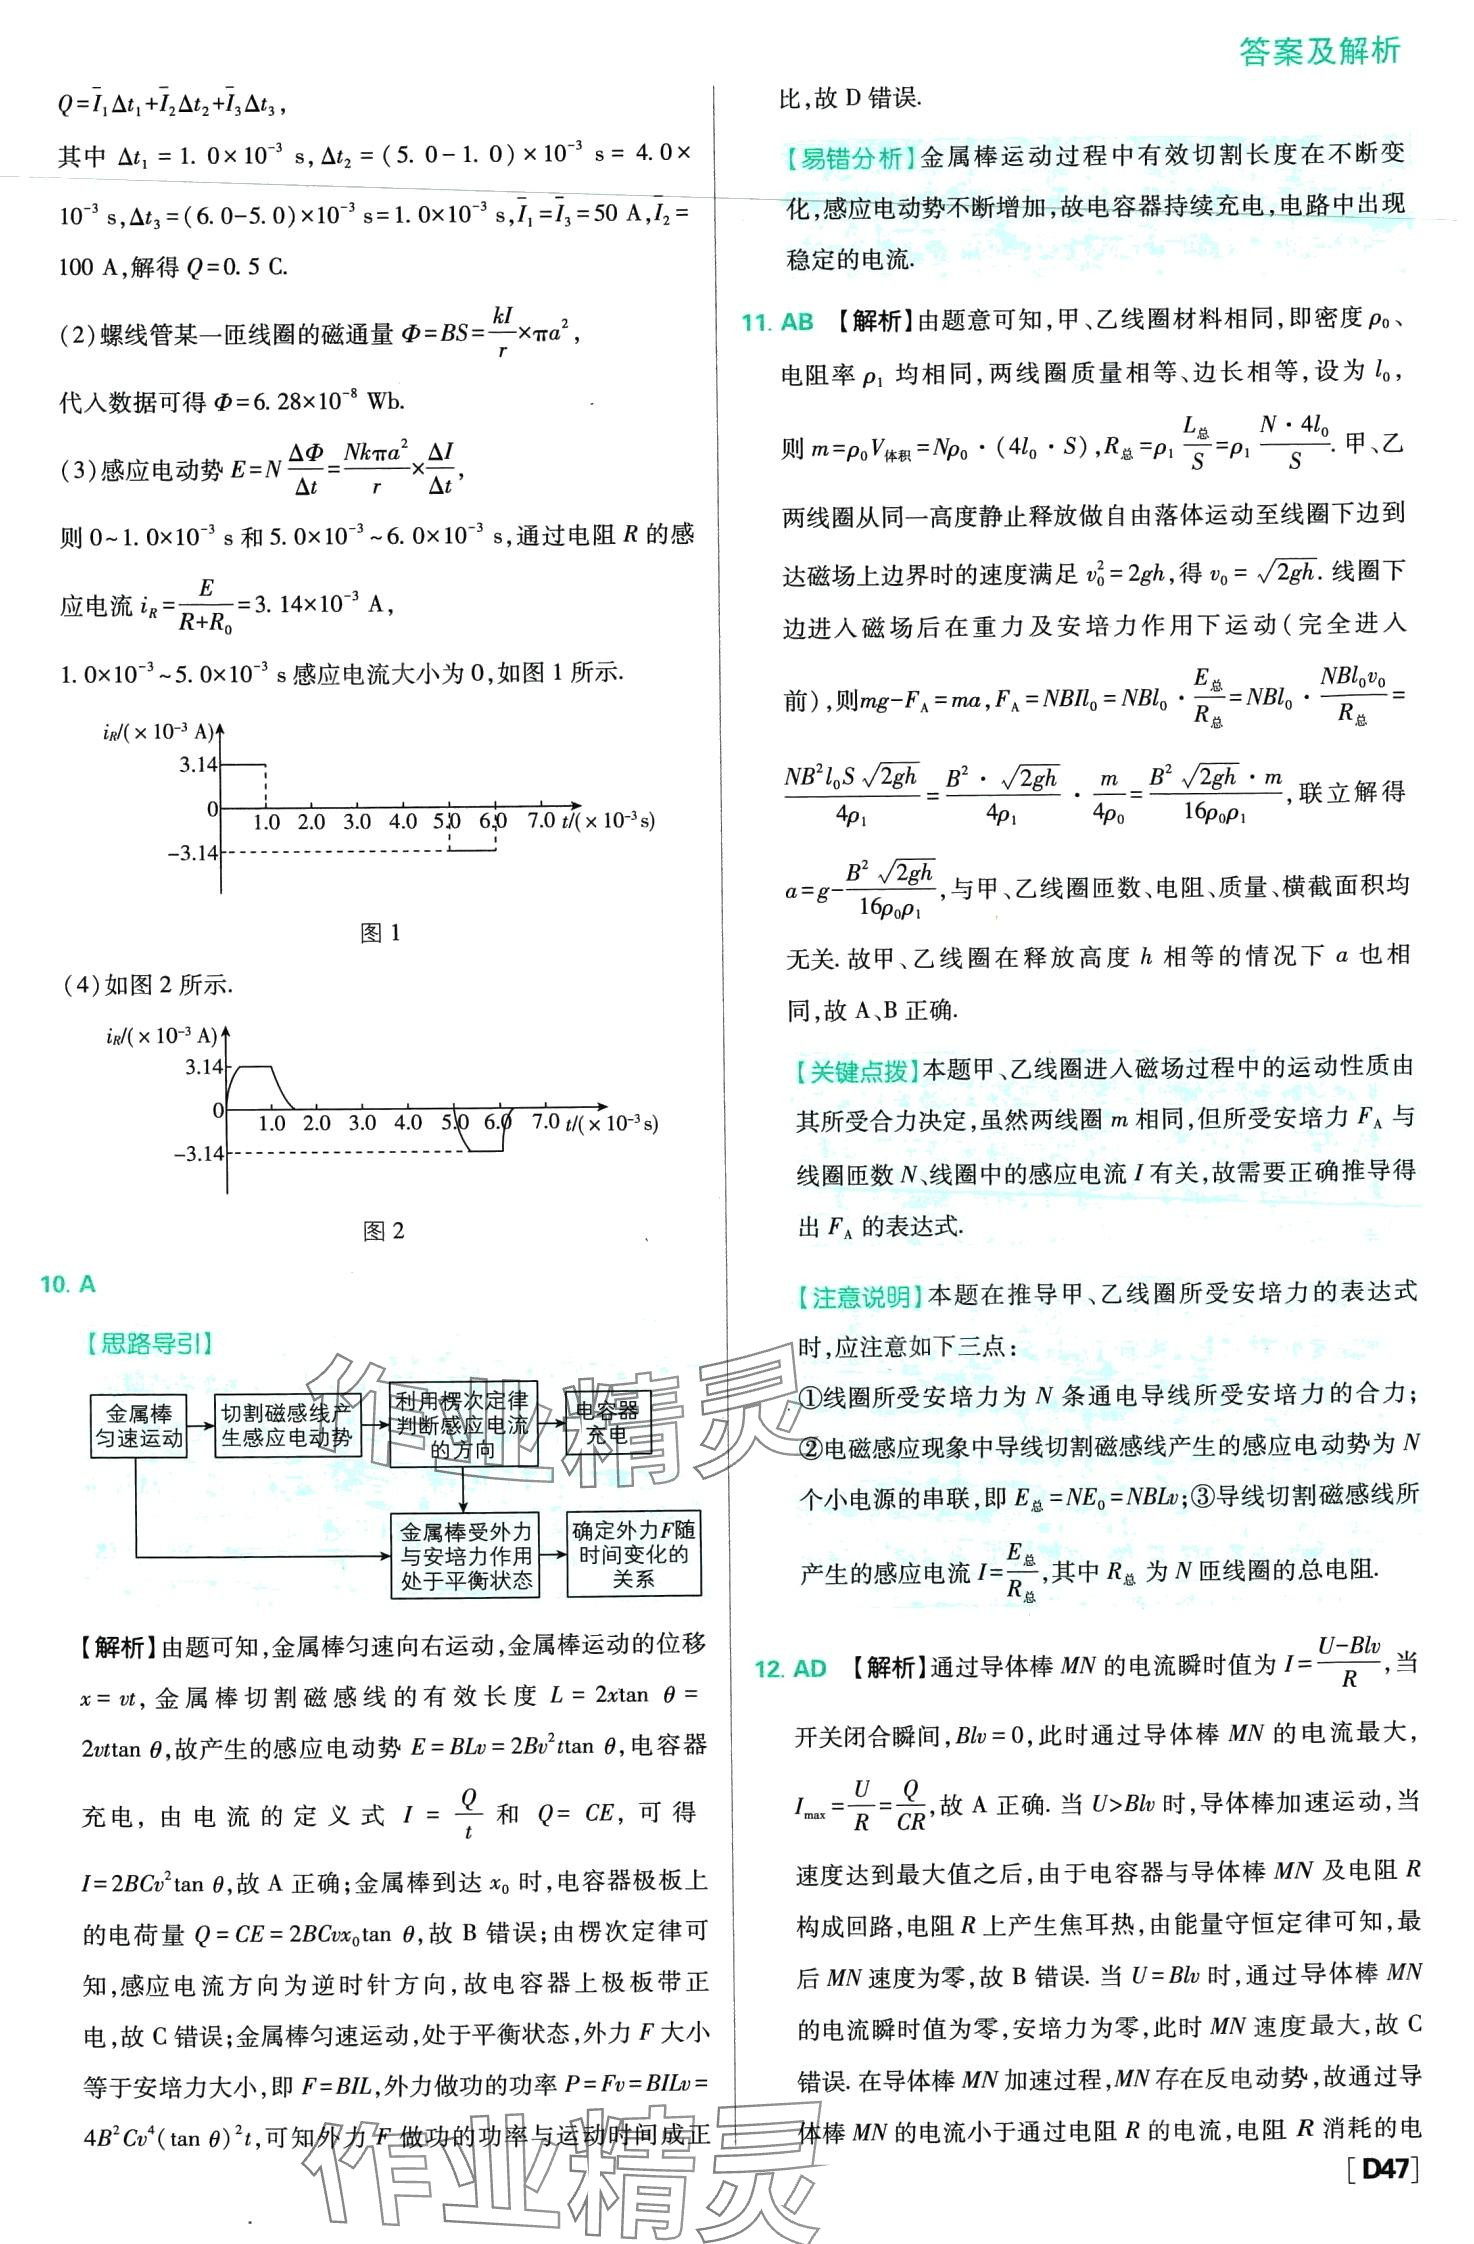 答案及解析
Q=Ī₁Δt₁+Ī₂Δt₂+Ī₃Δt₃,
其中 Δt₁ = 1. 0×10⁻³ s, Δt₂ = (5. 0-1. 0)×10⁻³ s = 4. 0×
10⁻³ s, Δt₃=(6. 0-5. 0)×10⁻³ s=1. 0×10⁻³ s, Ī₁=Ī₃=50 A, Ī₂=
100 A,解得 Q=0. 5 C.
(2)螺线管某一匝线圈的磁通量 Φ=BS=kI/r×πa²,
代入数据可得 Φ=6. 28×10⁻⁸ Wb.
(3)感应电动势 E=N ΔΦ/Δt=Nkπa²/r×ΔI/Δt,
则 0~1. 0×10⁻³ s 和 5. 0×10⁻³~6. 0×10⁻³ s,通过电阻 R 的感
应电流 i_R=E/(R+R₀)=3. 14×10⁻³ A,
1. 0×10⁻³~5. 0×10⁻³ s 感应电流大小为 0,如图 1 所示.
i_R/(×10⁻³ A)
3.14
0
1.0 2.0 3.0 4.0 5.0 6.0 7.0 t/(×10⁻³s)
-3.14
图 1
(4)如图 2 所示.
i_R/(×10⁻³ A)
3.14
0
1.0 2.0 3.0 4.0 5.0 6.0 7.0 t/(×10⁻³s)
-3.14
图 2
10. A
【思路导引】
金属棒
匀速运动
切割磁感线产
生感应电动势
利用楞次定律
判断感应电流
的方向
电容器
充电
金属棒受外力
与安培力作用
处于平衡状态
确定外力F随
时间变化的
关系
【解析】由题可知,金属棒匀速向右运动,金属棒运动的位移
x = vt, 金属棒切割磁感线的有效长度 L = 2xtan θ =
2vttan θ,故产生的感应电动势 E=BLv=2Bv²ttan θ,电容器
充电, 由电流的定义式 I = Q/t 和 Q= CE, 可得
I=2BCv²tan θ,故 A 正确;金属棒到达 x₀ 时,电容器极板上
的电荷量 Q=CE=2BCvx₀tan θ,故 B 错误;由楞次定律可
知,感应电流方向为逆时针方向,故电容器上极板带正
电,故 C 错误;金属棒匀速运动,处于平衡状态,外力 F 大小
等于安培力大小,即 F=BIL,外力做功的功率 P=Fv=BILv=
4B²Cv⁴(tan θ)²t,可知外力 F 做功的功率与运动时间成正
比,故 D 错误.
【易错分析】金属棒运动过程中有效切割长度在不断变
化,感应电动势不断增加,故电容器持续充电,电路中出现
稳定的电流.
11. AB 【解析】由题意可知,甲、乙线圈材料相同,即密度 ρ₀、
电阻率 ρ₁ 均相同,两线圈质量相等、边长相等,设为 l₀,
则 m=ρ₀V体积=Nρ₀·(4l₀·S),R总=ρ₁ L总/S=ρ₁ N·4l₀/S. 甲、乙
两线圈从同一高度静止释放做自由落体运动至线圈下边到
达磁场上边界时的速度满足 v₀²=2gh,得 v₀=√(2gh). 线圈下
边进入磁场后在重力及安培力作用下运动(完全进入
前),则mg-F_A=ma,F_A=NBIl₀=NBl₀·E总/R总=NBl₀·NBl₀v₀/R总=
NB²l₀S√(2gh)/4ρ₁=B²·√(2gh)/4ρ₁·m/4ρ₀=B²√(2gh)·m/16ρ₀ρ₁,联立解得
a=g-B²√(2gh)/16ρ₀ρ₁,与甲、乙线圈匝数、电阻、质量、横截面积均
无关. 故甲、乙线圈在释放高度 h 相等的情况下 a 也相
同,故 A、B 正确.
【关键点拨】本题甲、乙线圈进入磁场过程中的运动性质由
其所受合力决定,虽然两线圈 m 相同,但所受安培力 F_A 与
线圈匝数 N、线圈中的感应电流 I 有关,故需要正确推导得
出 F_A 的表达式.
【注意说明】本题在推导甲、乙线圈所受安培力的表达式
时,应注意如下三点:
①线圈所受安培力为 N 条通电导线所受安培力的合力;
②电磁感应现象中导线切割磁感线产生的感应电动势为 N
个小电源的串联,即 E总=NE₀=NBLv;③导线切割磁感线所
产生的感应电流 I=E总/R总,其中 R总 为 N 匝线圈的总电阻.
12. AD 【解析】通过导体棒 MN 的电流瞬时值为 I=(U-Blv)/R,当
开关闭合瞬间,Blv=0,此时通过导体棒 MN 的电流最大,
I_max=U/R=Q/CR,故 A 正确. 当 U>Blv 时,导体棒加速运动,当
速度达到最大值之后,由于电容器与导体棒 MN 及电阻 R
构成回路,电阻 R 上产生焦耳热,由能量守恒定律可知,最
后 MN 速度为零,故 B 错误. 当 U=Blv 时,通过导体棒 MN
的电流瞬时值为零,安培力为零,此时 MN 速度最大,故 C
错误. 在导体棒 MN 加速过程,MN 存在反电动势,故通过导
体棒 MN 的电流小于通过电阻 R 的电流,电阻 R 消耗的电
[D47]
作业精灵
作业精灵